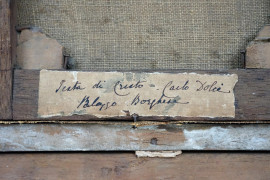 Testa di Cristo - Carlo Dolci
Palazzo Borghese